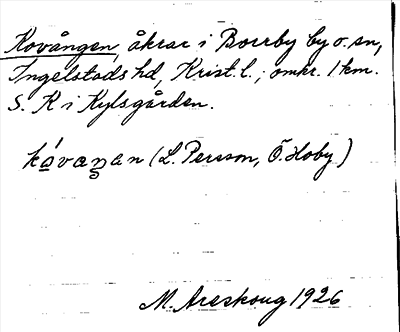 Kovången, åkrar i Borrby by o. sn,
Ingelstads hd, Krist. l.; omkr. 1 km.
S. K i Kylsgården.
kóvaṉan (L. Persson, Ö. Hoby)
M. Areskoug 1926